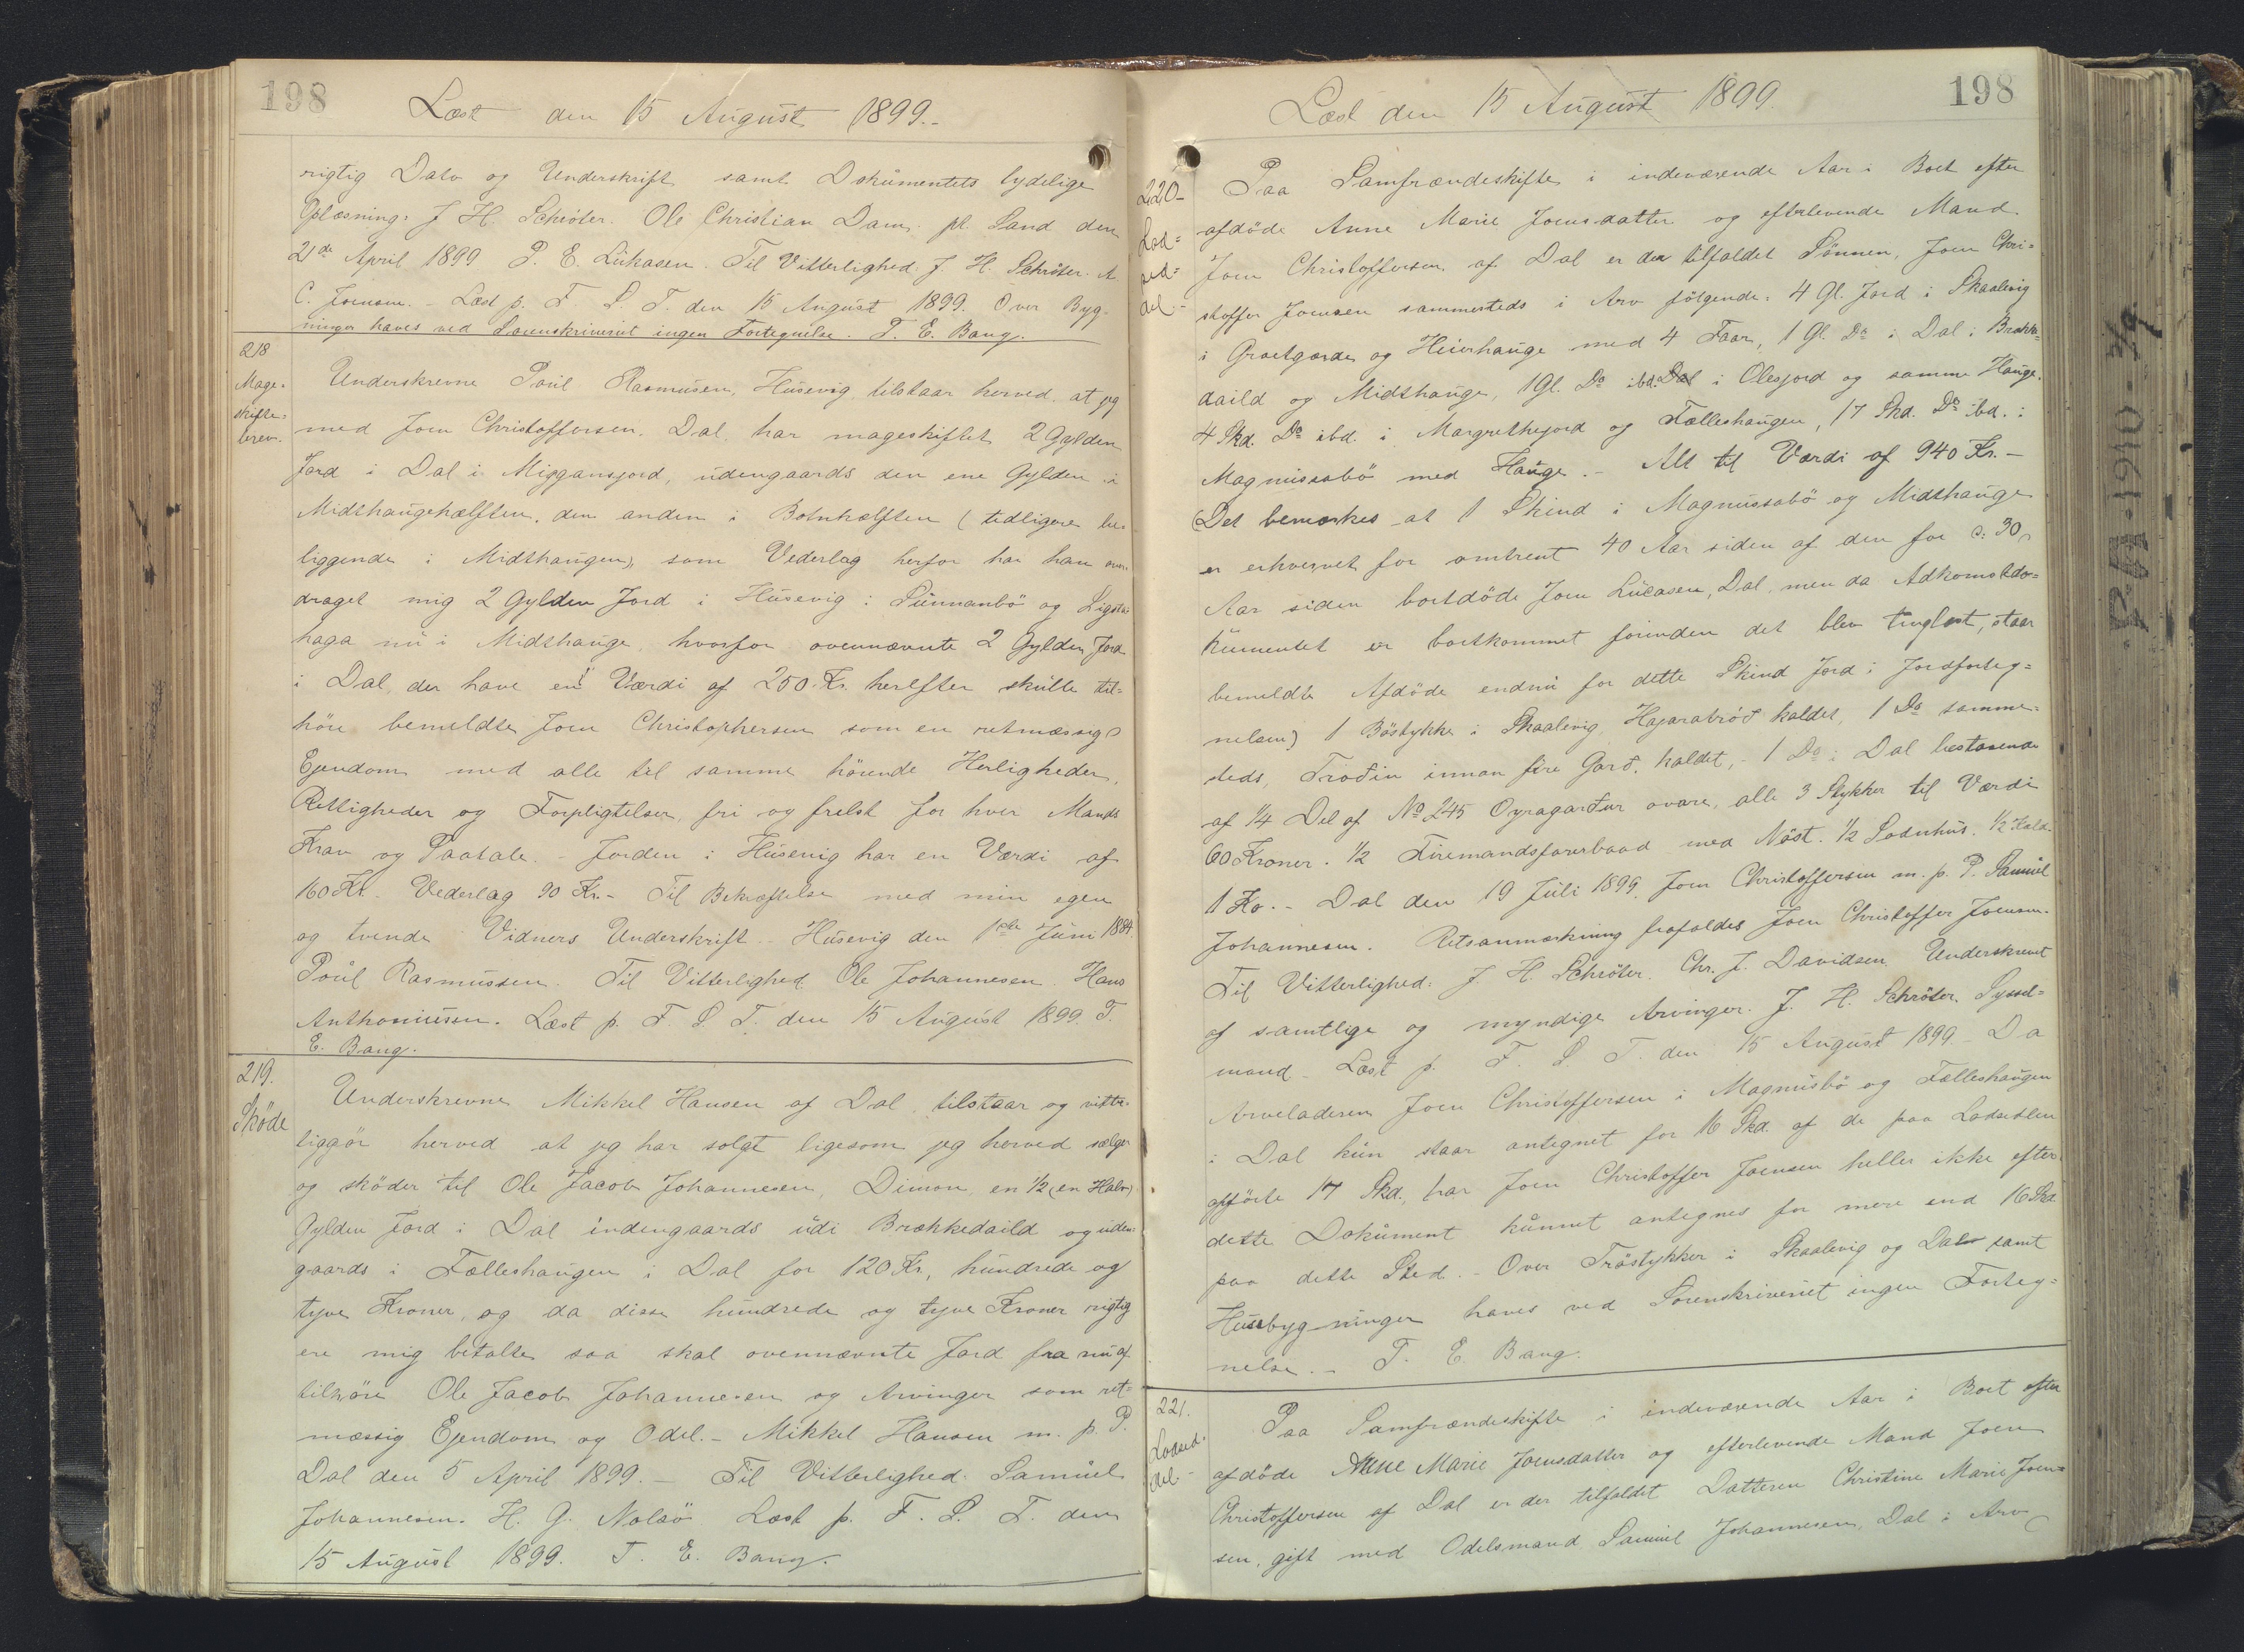 198
Læst den 15 August 1899.-
rigtig Dato og Underskrift samt Dokumentets lydelige
Oplæsning: J. H. Schröter. Ole Christian Dam. pl. Sand den
21de April 1899 P. E. Lükasen. Til Vitterlighed: J. H. Schröter. A.
C. Joensen. - Læst p. F. S. T. den 15 August 1899. Over Byg-
ninger haves ved Sorenskriveriet ingen Fortegnelse. T. E. Bang.
218
Mage-
skifte-
brev.
Underskrevne Poul Rasmusen, Husevig tilstaar herved, at jeg
med Joen Christoffersen, Dal, har mageskiftet 2 Gylden
Jord i Dal i Miggansjord, udengaards den ene Gylden i
Midthaugehælften, den anden i Botnhælften (tidligere be-
liggende i Midthaugen), som Vederlag herfor har han over-
draget mig 2 Gylden Jord i Husevig i Sunnanbö og Ligsta-
haga nu i Midthauge, hvorfor ovennævnte 2 Gylden Jord
i Dal, der have en Værdi af 250 Kr. herefter skulle til-
höre bemeldte Joen Christophersen som en retmæssig
Ejendom med alle til samme hörende Herligheder,
Rettigheder og Forpligtelser, fri og frelst for hver Mands
Krav og Paatale. - Jorden i Husevig har en Værdi af
160 Kr. Vederlag 90 Kr. - Til Bekræftelse med min egen
og tvende Vidners Underskrift. Husevig den 1ste Juni 1884.
Poul Rasmussen. Til Vitterlighed Ole Johannesen. Hans
Anthoniusen. Læst p. F. S. T. den 15 August 1899. T.
E. Bang.
219.
Sköde
Underskrevne Mikkel Hansen af Dal, tilstaar og vitter-
liggör herved at jeg har solgt ligesom jeg herved sælger
og sköder til Ole Jacob Johannesen, Dimon, en 1/2 (en Halv)
Gylden Jord i Dal indengaards udi Brækkedaild og uden-
gaards i Fælleshaugen i Dal for 120 Kr, hundrede og
tyve Kroner, og da disse hundrede og tyve Kroner rigtig
ere mig betalte saa skal ovennævnte Jord fra nu af
tilhöre Ole Jacob Johannesen og Arvinger som ret-
mæssig Ejendom og Odel. - Mikkel Hansen m. p. P.
Dal den 5 April 1899. - Til Vitterlighed: Samuel
Johannesen. H. J. Nolsö. Læst p. F. S. T. den
15 August 1899. T. E. Bang.
Læst den 15 August 1899.
198
220-
Lod-
sed-
del -
Paa Samfrændeskifte i indeværende Aar i Boet efter
afdöde Anne Marie Joensdatter og efterlevende Mand
Joen Christoffersen af Dal er der tilfaldet Sönnen, Joen Chri-
stoffer Joensen sammesteds i Arv fölgende: 4 Gl. Jord i Skaalevig
i Groetgærde og Heierhauge med 4 Faar, 1 Gl. Do i Dal i Brække-
daild og Midthauge, 1 Gl. Do ibd. i Olesjord og samme Hauge.
4 Skd. Do ibd. i Margrethejord og Fælleshaugen, 17 Skd. Do ibd. i
Magnussabö med Hauge. - Alt til Værdi af 940 Kr. -
(Det bemærkes at 1 Skind i Magnussabö og Midthauge
er erhvervet for omtrent 40 Aar siden af den for c: 30
Aar siden bortdöde Joen Lucasen, Dal, men da Adkomstdo-
kumentet er bortkommet forinden det blev tinglæst, staar
bemeldte Afdöde endnu for dette Skind Jord i Jordforteg-
nelsen) 1 Böstykke i Skaalevig, Hagaratröð kaldet, 1 Do samme-
steds, Tröðin innan fire Garð, kaldet, - 1 Do i Dal bestaaende
af 1/4 Del af No 245 Oyragarður ovare, alle 3 Stykker til Værdi
60 Kroner. 1/2 Firemandsfarerbaad med Nöst. 1/2 Sodnhus. 1/2
1 Ko. - Dal den 19 Juli 1899. Joen Christoffersen m. p. P. Samuel
Johannesen. Retsanmærkning frafaldes Joen Christoffer Joensen.
Til Vitterlighed: J. H. Schröter. Chr. J. Davidsen. Underskrevet
af samtlige og myndige Arvinger. J. H. Schröter, Syssel-
mand. Læst p. F. S. T. den 15 August 1899. - Da
Arveladeren Joen Christoffersen i Magnusbö og Fælleshaugen
i Dal kun staar antegnet for 16 Skd. af de paa Lodsedlen
opförte 17 Skd., har Joen Christoffer Joensen heller ikke efter
dette Dokument kunnet antegnes for mere end 16 Skd
paa dette Sted. - Over Tröstykker i Skaalevig og Dal samt
Husebygninger haves ved Sorenskriveriet ingen Forteg-
nelse. - T. E. Bang.
221.
Lodsed-
del -
Paa Samfrændeskifte i indeværende Aar i Boet efter
afdöde Anne Marie Joensdatter og efterlevende Mand Joen
Christoffersen af Dal er der tilfaldet Datteren Christine Marie Joen-
sen, gift med Odelsmand Samuel Johannesen, Dal i Arv